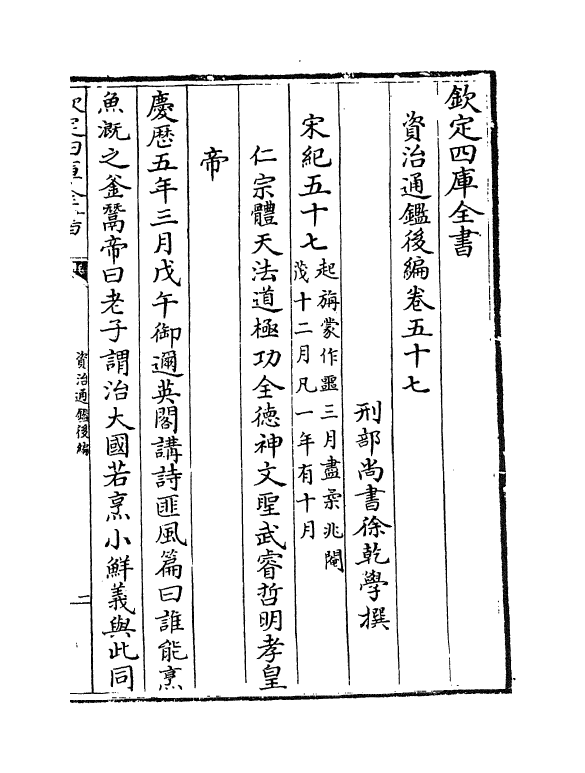 欽定四庫全書
資治通鑑後編卷五十七
刑部尚書徐乾學撰
宋紀五十七起旃蒙作噩三月盡柔兆閹
茂十二月凡一年有十月
仁宗體天法道極功全德神文聖武睿哲明孝皇
帝
慶歴五年三月戊午御邇英閣講詩匪風篇曰誰能烹
魚溉之釜鬵帝曰老子謂治大國若烹小鮮義與此同
欽定四庫全書
資治通鑑後編